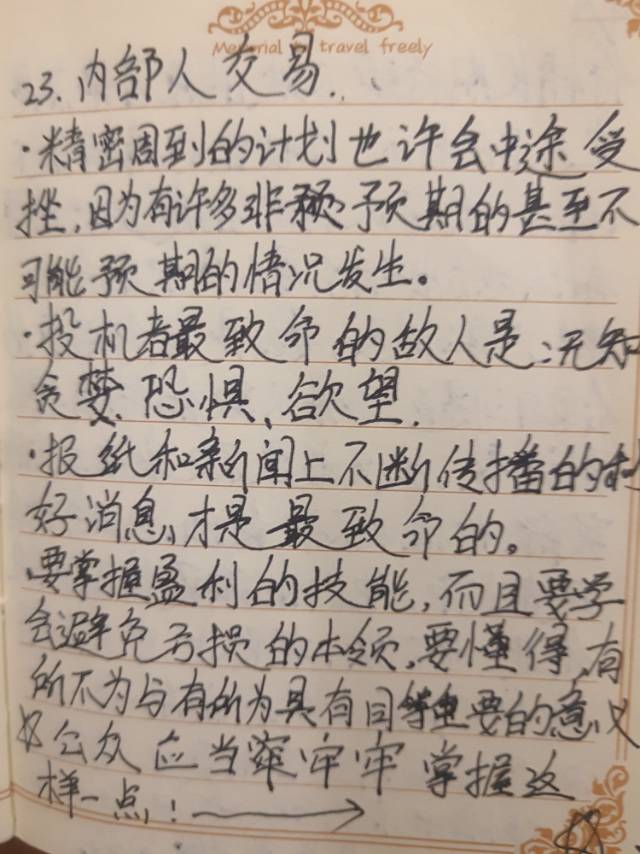 Memorial of travel freely
23. 内部人交易.
·精密周到的计划也许会中途受
挫,因为有许多非预预期的甚至不
可能预期的情况发生。
·投机者最致命的故人是:无知
贪婪、恐惧、欲望.
·报纸和新闻上不断传播的利
好消息,才是最致命的。
·要掌握盈利的技能,而且要学
会避免亏损的本领,要懂得,有
所不为与有所为具有同等重要的意义
公众应当牢牢牢掌握这
样一点!